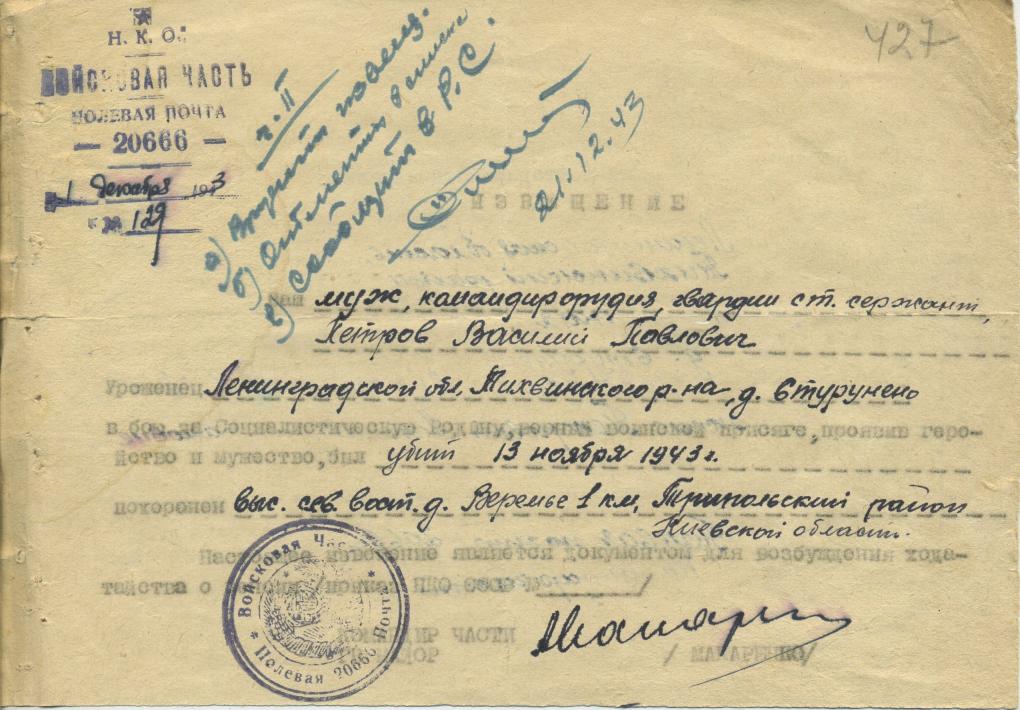 427
Н. К. О.
ВОЙСКОВАЯ ЧАСТЬ
ПОЛЕВАЯ ПОЧТА
— 20666 —
1 декабря 1943
№ 129
ч. II
а) Вручить извещ.
б)
в) сообщить в Р, С
21.12.43
ИЗВЕЩЕНИЕ
Ваш муж, командир орудия, гвардии ст. сержант,
Петров Василий Павлович
Уроженец Ленинградской обл, Тихвинского р-на, д. Стурунено
в бою за Социалистическую Родину, верный воинской присяге, проявив геро-
йство и мужество, был убит 13 ноября 1943 г.
похоронен выс. сев. вост. д. Веремье 1 км, Трипольский район
Киевской област.
Настоящее извещение является документом для возбуждения хода-
тайства о пенсии /приказ НКО СССР № /
КОМАНДИР ЧАСТИ
/ МАКАРЕНКО/
Войсковая Часть
* Полевая 20666 Почта *